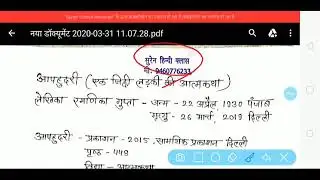 नया डॉक्यूमेंट 2020-03-31 11.07.28.pdf
सुरेन हिन्दी क्लास
मो. 9460776233
आपहुदरी (एक जिद्दी लड़की की आत्मकथा)
लेखिका रमणिका गुप्ता - जन्म - 22 अप्रैल 1930 पंजाब
मृत्यु - 26 मार्च, 2019 दिल्ली
आपहुदरी - प्रकाशन - 2015, सामयिक प्रकाशन दिल्ली
पृष्ठ - 448
विधा - आत्मकथा